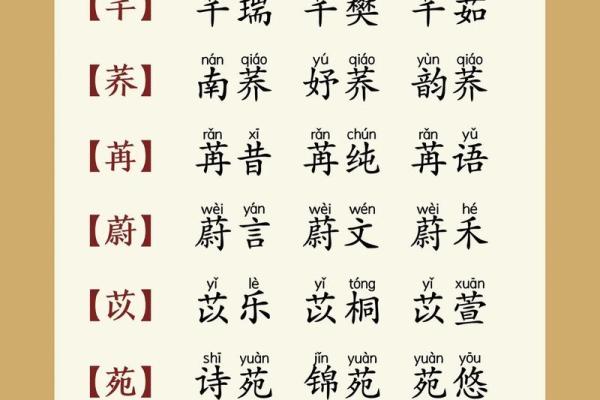 【芊】 芊瑞 芊樊 芊茹
nán qiáo yú qiáo yùn qiáo
【荞】 南荞 妤荞 韵荞
rǎn xī rǎn chún rǎn yǔ
【苒】 苒昔 苒纯 苒语
wèi yán wèi wén wèi hé
【蔚】 蔚言 蔚文 蔚禾
yǐ lè yǐ tóng yǐ xuān
【苡】 苡乐 苡桐 苡萱
shī yuàn jǐn yuàn yuàn yōu
【苑】 诗苑 锦苑 苑悠